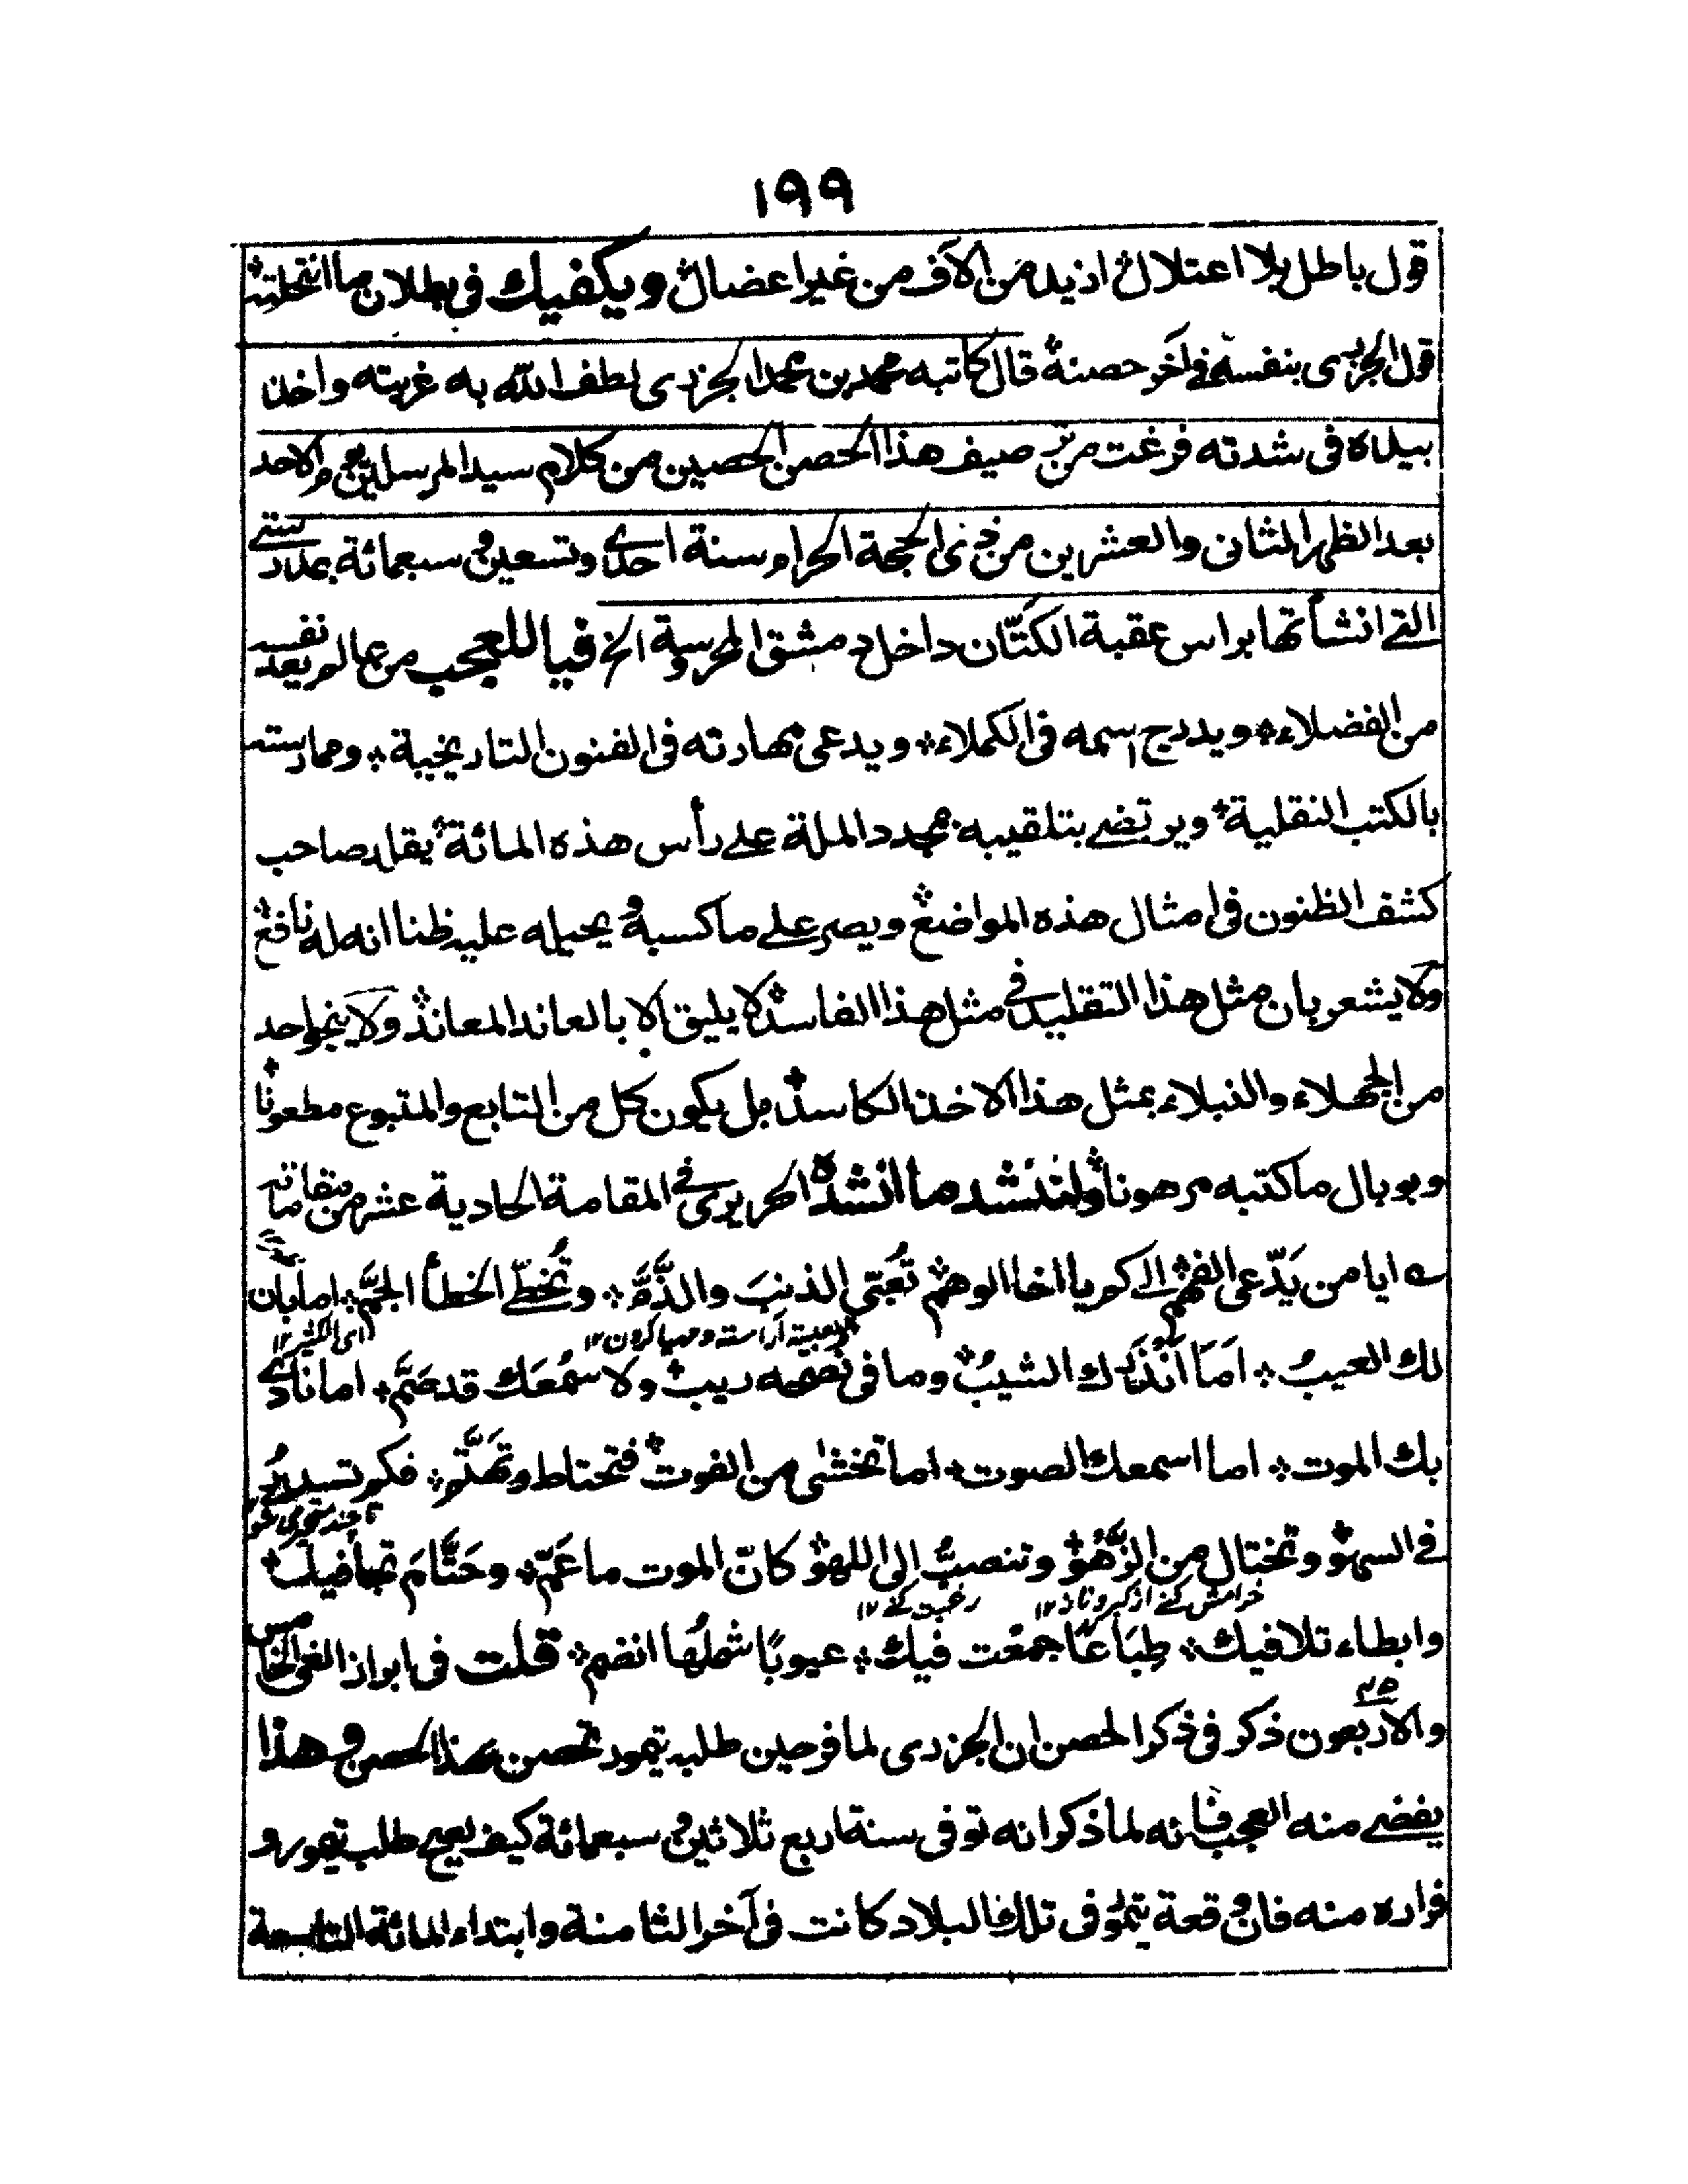 ١٩٩
قول باطل بلا اعتلال ازيد من الآف من غير اعضال ويكفيك في بطلان ما انتحلته
قول الجزري بنفسه في آخر حصنه قال كاتبه محمد بن محمد الجزري لطف الله به غربته واخذ
بيده في شدته فرغت من ترصيف هذا الحصن الحصين من كلام سيد المرسلين يوم الاحد
بعد الظهر الثاني والعشرين من ذي الحجة الحرام سنة احدى وتسعين وسبعمائة بمدرستي
التي انشأتها براس عقبة الكتّان داخل دمشق المحروسة الخ فيا للعجب من عالم يعد نفسه
من الفضلاء ويدرج اسمه في الكملاء ويدعى مهارته في الفنون التاريخية وممارسته
بالكتب النقلية ويرتضي بتلقيبه مجدد الملة على رأس هذه المائة يقلد صاحب
كشف الظنون في امثال هذه المواضع ويصر على ما كسبه ويحيله عليه ظنا انه له نافع
ولا يشعر بان مثل هذا التقليد في مثل هذا الفاسد لا يليق الا بالعاند المعاند ولا ينجو احد
من الجهلاء والنبلاء بمثل هذا الاخذ الكاسد بل يكون كل من التابع والمتبوع مطعونا
وبوبال ما كتبه مرهونا ولننشد ما انشده الحريري في المقامة الحادية عشر من مقاماته
ايا من يَدّعى الفهم الى كم يا اخا الوهم تُعَبّى الذنبَ والذَّمَّ وتُخطّي الخطأ الجَمَّ اما بان
تعبية آراسته ومهيا كردن ١٢ اي الكثير ١٢
لك العيبُ اَمَا اَنْذَرَك الشيبُ وما في نصحه ريب ولا سَمْعَك قد صَمّ اما نادى
بك الموت اما اسمعك الصوت اما تخشى من الفوت فتحتاط وتَهتَم فكم تسدر
في السهو وتختال من الزَّهْو وتنصبُّ الى اللهو كانّ الموت ما عَمّ وحَتَّامَ تجافيك
خرامش كنے از كبر وناز ١٢ رغبت كنے ١٢
وابطاء تلافيك طِبَاعًا جمّعت فيك عيوبًا شملُها انضم قلت في ابراز الغي الخامس
والاربعون ذكر في ذكر الحصن ان الجزري لما فر حين طلبه تيمور تحصن بهذا الحصن وهذا
يفضي منه العجب فانه لما ذكر انه توفى سنة اربع ثلاثين وسبعمائة كيف يصح طلب تيمور و
فراره منه فان وقعة تيمور في تلك البلاد كانت في آخر الثامنة وابتداء المائة التاسعة